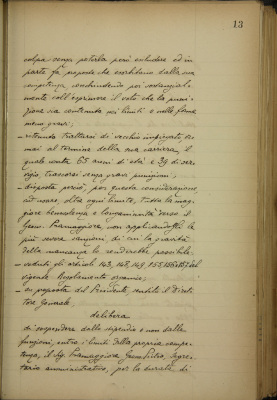 13
colpa senza poterla però escludere ed in
parte fa proposte che esorbitano dalla sua
competenza, concludendo poi sostanzial-
mente coll'esprimere il voto che la puni-
zione sia contenuta nei limiti e nelle forme
meno gravi;
- ritenuto trattarsi di vecchio impiegato or-
mai al termine della sua carriera, il
quale conta 65 anni d'età e 39 di ser-
vizio, trascorsi senza gravi punizioni;
- disposta perciò, per questa considerazione
ad usare, oltre ogni limite, tutta la mag-
giore benevolenza e longanimità verso il
Geom. Pramaggiore, non applicandogli la
più severa sanzione di cui la gravità
della mancanza lo renderebbe passibile
- veduti gli articoli 143, 148, 149, 155 del
vigente Regolamento organico;
- su proposta del Presidente, sentito il Diret-
tore Generale
delibera
di sospendere dallo stipendio e non dalle
funzioni, entro i limiti della propria compe-
tenza, il Sig. Pramaggiore Geom. Pietro, Segre-
tario amministrativo, per la durata di